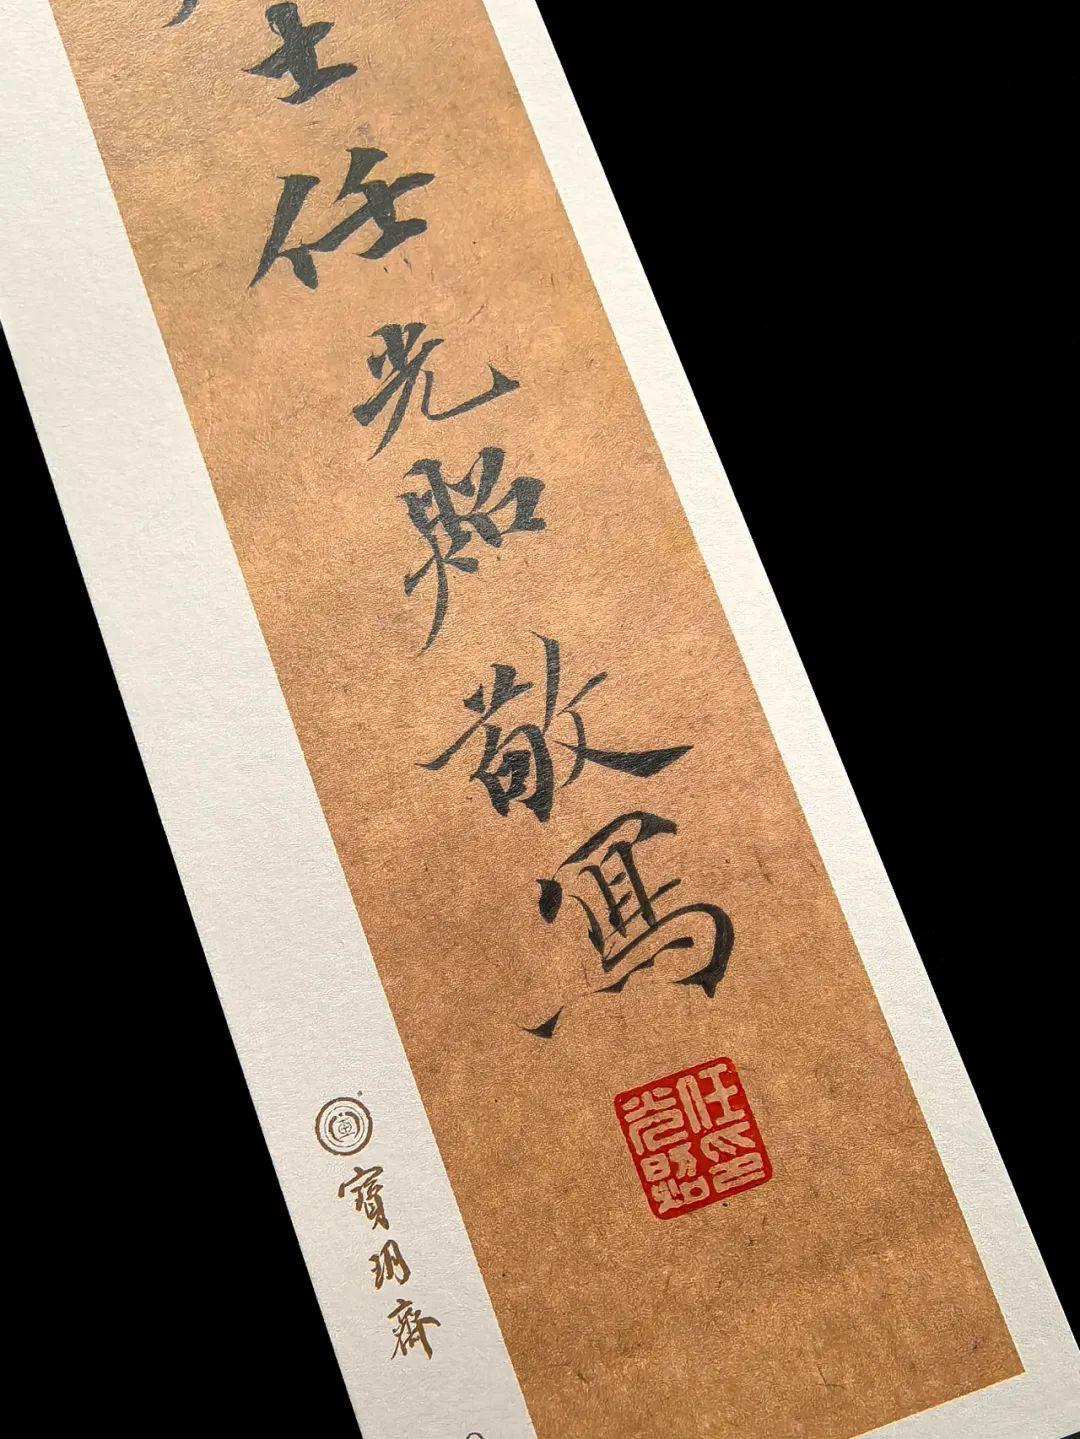 士任光照敬寫
任印光照
寶玥齋